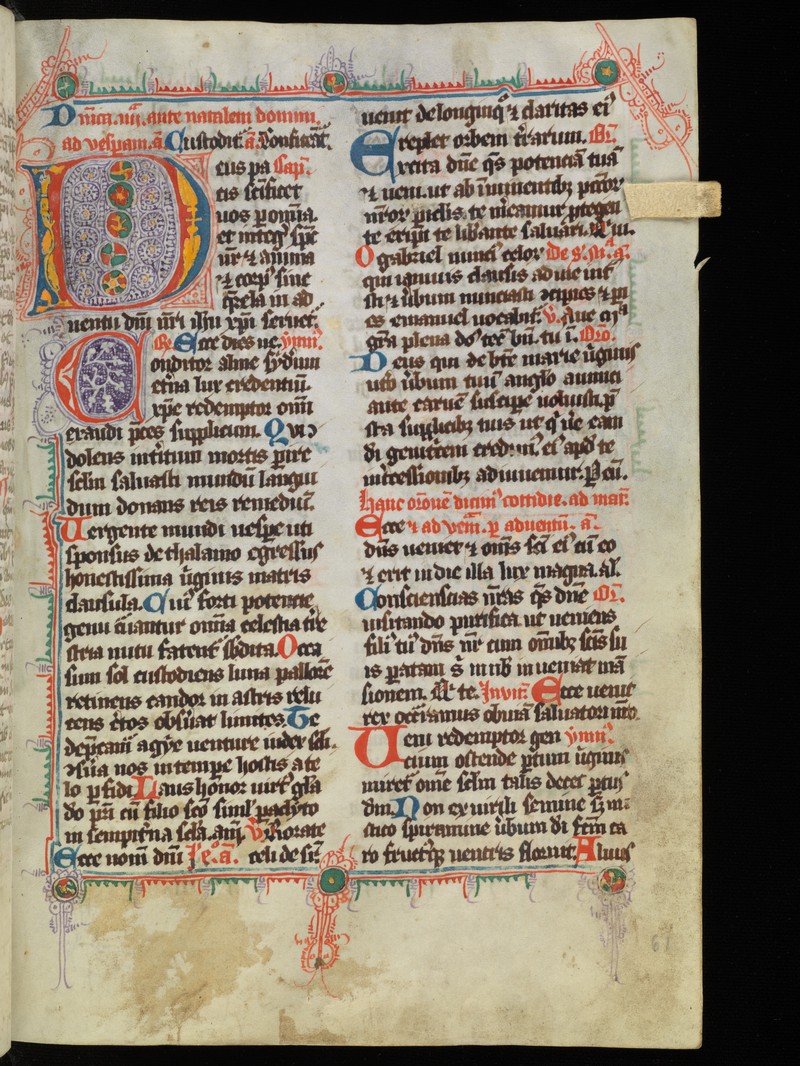 Dnica. iiii. ante natalem domini.
ad vesp̄am. a. Custodit. a. Confitebit̄.
Deus pa Cap.
cis sc̄ificet
uos p om̄ia.
et integ sp̄c
ur̄ ⁊ anima
⁊ corp sine
q̄rela in ad
uentu dn̄i nr̄i ih̄u xp̄i seruet.
Br. Ecce dies ue. ymn.
Conditor alme syderum
et̄na lux credentiū.
xp̄e redemptor om̄i
exaudi p̄ces supplicum. Qui ↄ
dolens interitum mortis p̄ire
sc̄lm saluasti mundū langui
dum donans reis remediū.
Uergente mundi uesp̄e uti
sponsus de thalamo egressus
honestissima ūginis matris
clausula. Cui forti potencie
genu c̄uantur om̄ia celestia t̄re
stria nutu fatent̄ sb̄dita. Occa
sum sol custodiens luna pallorē
retinens candor in astris relu
cens c̄tos obs̄uat limites. Te
dep̄cam̄ agye uenture iudex sc̄li.
ↄs̄ua nos in tempe hostis a te
lo p̄fidi. Laus honor uirt̄ gl̄a
do pr̄i cū filio sc̄o siml̄ paclyto
in sempit̄na sc̄la. am̄. V. Rorate
Ecce nom̄ dn̄i celi desr̄
uenit de longinq̄ ⁊ claritas ei
replet orbem t̄rarum. Or.
Excita dn̄e q̄s potenciā tuā
⁊ ueni. ut ab īminentibȝ pc̄cor
nr̄or p̄iclis. te m̄eamur p̄tegen
te eripi te lib̄ante saluari. Q ui.
O gabriel nunci celor De s. m. a.
qui ianuis clausis ad me int̄
sti ⁊ ūbum nunciasti ↄcipies ⁊ p̄i
es emanuel uocabit̄. V. Aue m̄a
gr̄a plena ds̄ tec̄ bn̄. tu ī. Oro.
Deus qui de bt̄e marie ūginis
ut̄o ūbum tuū anglo nunci
ante carnē suscipe uoluisti. p̄
sta supplicibȝ tuis ut q̄ ūe eam
di genitricem credim̄. ei ap̄d te
int̄cessionibȝ adiuuemur. P eū.
Hanc or̄onē dicim̄ cottidie. ad mag̅.
Ecce ⁊ ad ves̄. p aduentū. a.
dn̄s ueniet ⁊ om̄s sc̄i ei cū eo
⁊ erit in die illa lux magna. al.
Consciencias nr̄as q̄s dn̄e Or.
uisitando purifica ut ueniens
fili tu dn̄s nr̄ cum om̄ibȝ sc̄is su
is paratam s̄ in nob̄ inueniat mā
sionem. Q te. Invit. Ecce uenit
rex occ̄ramus obuiā saluatori nr̄o.
Ueni redemptor gen ymn.
cium ostende p̄tum ūginis
miret̄ om̄e sc̄lm talis decet p̄tus
dm̄. Non ex uirili semine s̄ mi
stico spiramine ūbum di fc̄m ca
ro fructqȝ uentris floruit. Aluus